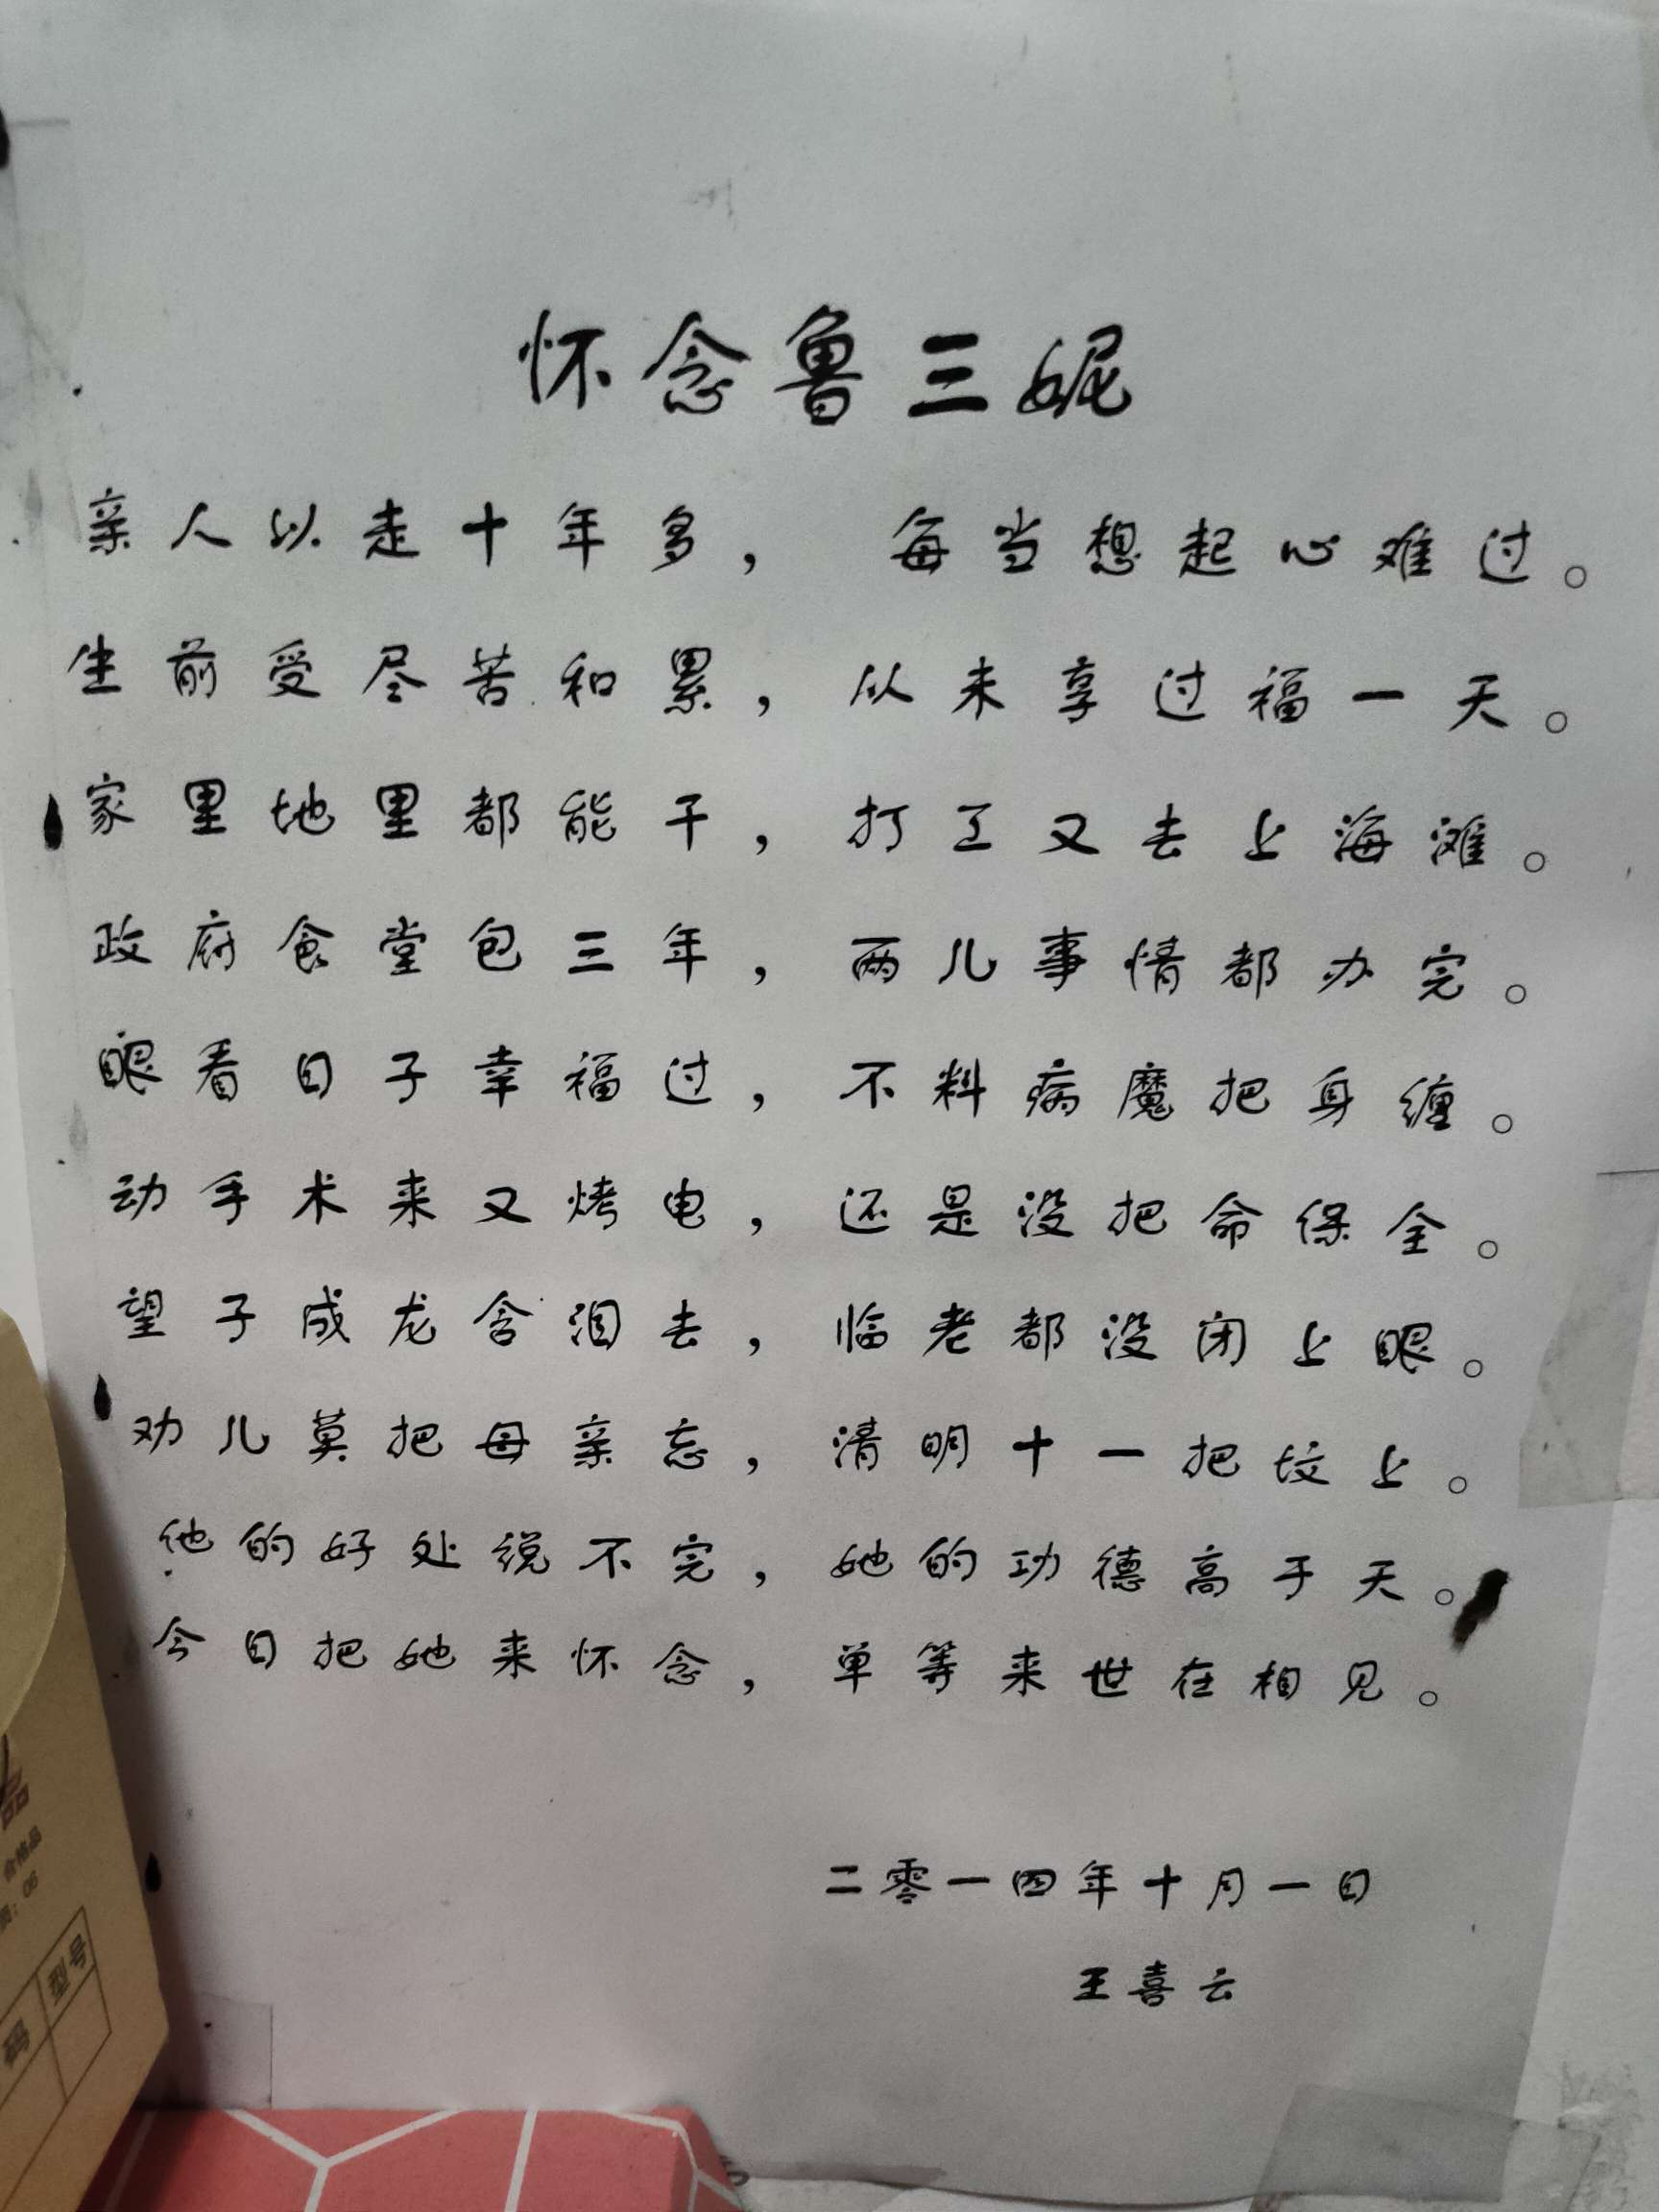 怀念鲁三妮
亲人以走十年多， 每当想起心难过。
生前受尽苦和累，从未享过福一天。
家里地里都能干，打工又去上海滩。
政府食堂包三年，两儿事情都办完。
眼看日子幸福过，不料病魔把身缠。
动手术来又烤电，还是没把命保全。
望子成龙含泪去，临老都没闭上眼。
劝儿莫把母亲忘，清明十一把坟上。
他的好处说不完，她的功德高于天。
今日把她来怀念，单等来世在相见。
二零一四年十月一日
王喜云
合格品
06
型号
码